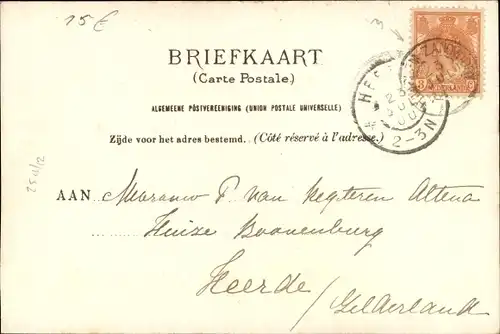 15 €
3
BRIEFKAART
(Carte Postale.)
ALGEMEENE POSTVEREENIGING (UNION POSTALE UNIVERSELLE)
Zijde voor het adres bestemd. (Côté réservé à l'adresse.)
AAN Mevrouw P. van Regteren Altena
Huize Boonenburg
Heerde/
Gelderland
25/11/12
2-3N
3